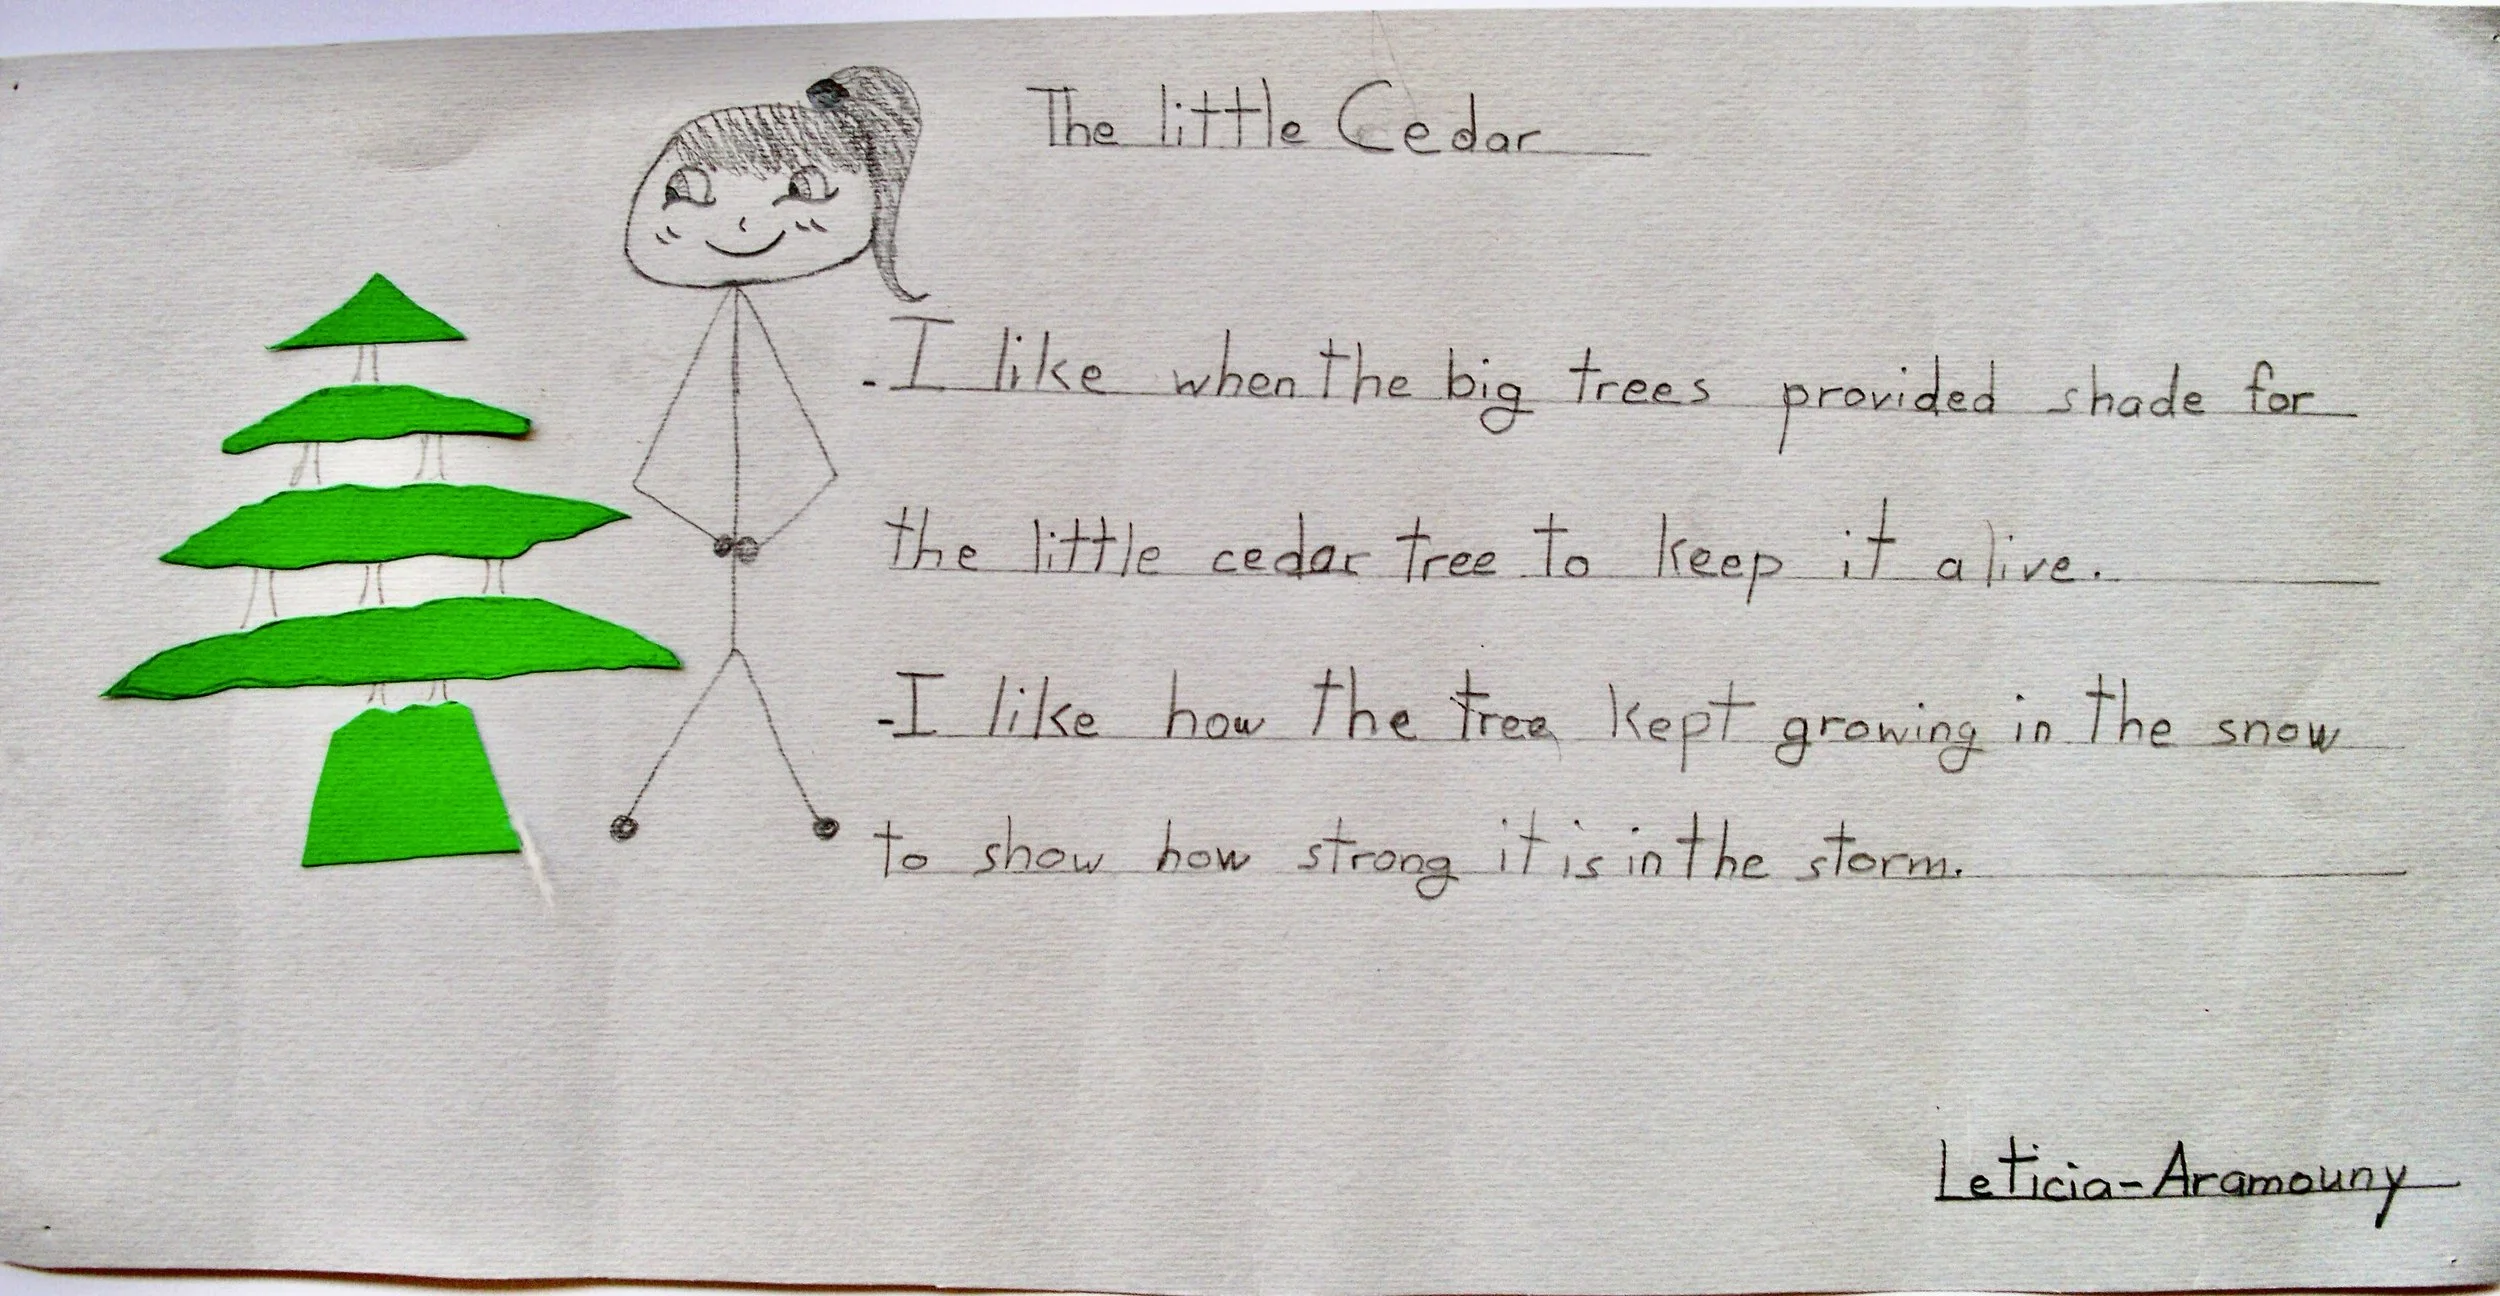 The little Cedar
-I like when the big trees provided shade for
the little cedar tree to keep it alive.
-I like how the tree kept growing in the snow
to show how strong it is in the storm.
Leticia-Aramouny